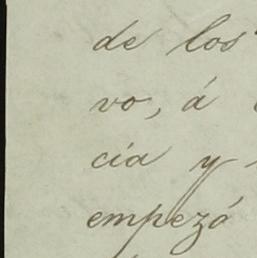 de los
vo, á
cia y
empezó